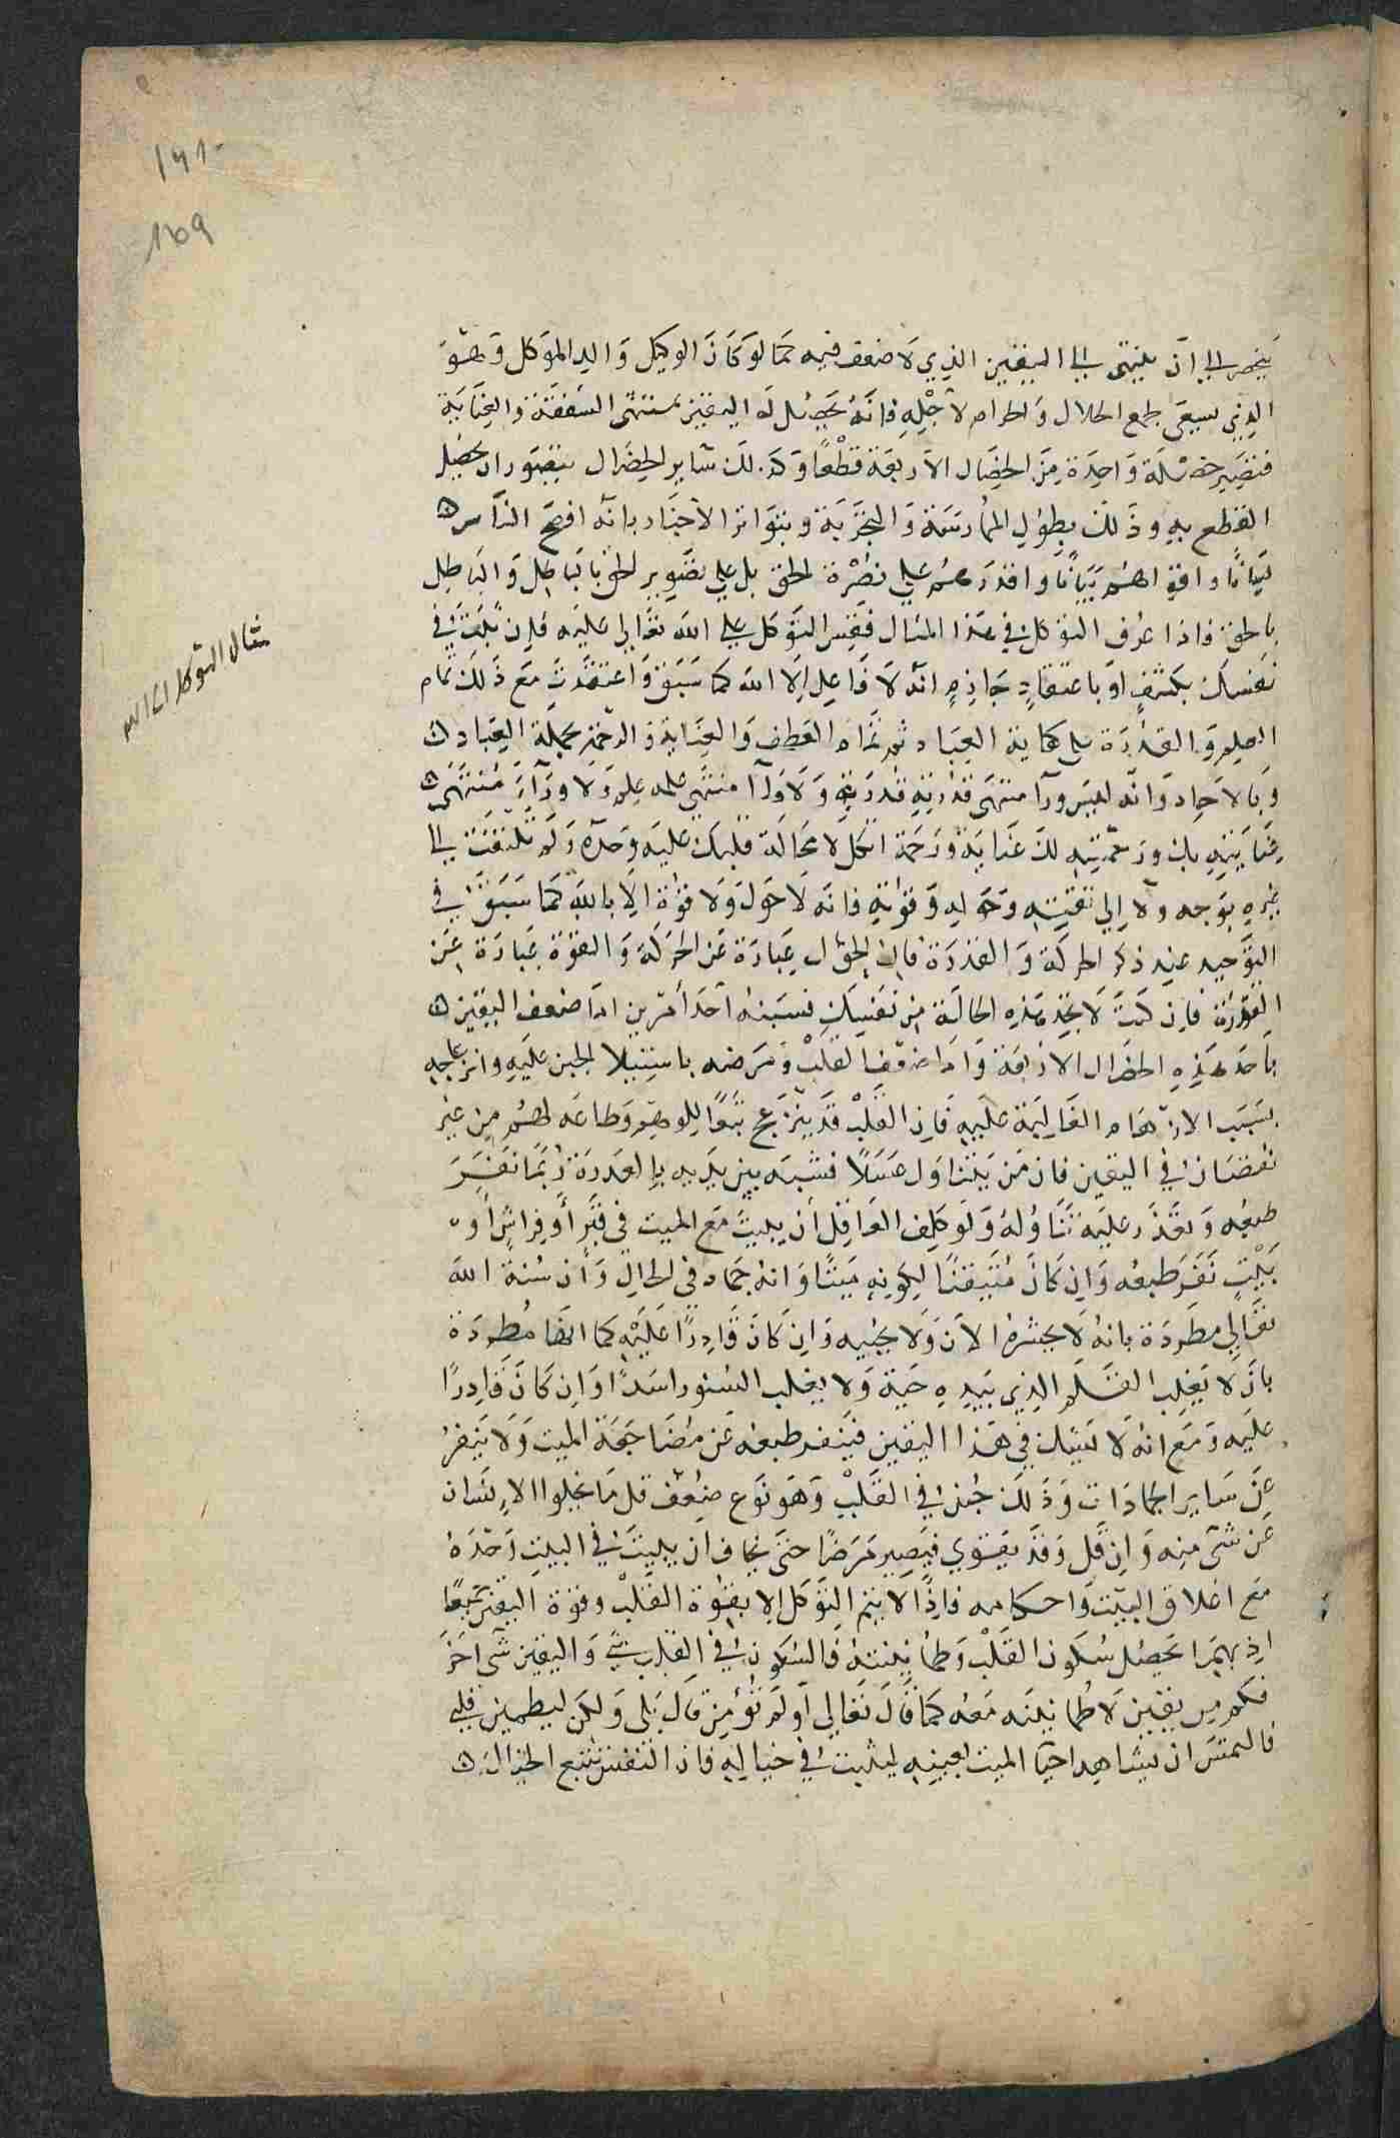 ١٦١
١٥٩
ينحصر إلى أن ينتهى إلى اليقين الذي لا ضعف فيه كما لو كان الوكيل والد الموكل وهو
الذي يسعى لجمع الحلال والحرام لأجله فإنه يحصل له اليقين بمنتهى الشفقة والعناية
فتصير خصلة واحدة من الخصال الأربعة قطعًا وكذلك سائر الخصال يتصور ان يحصل
القطع به وذلك بطول الممارسة والتجربة وبتواتر الأخبار بانه افصح الناس
لسانًا واقواهم بيانًا واقدرهم على نصرة الحق بل على تصوير الحق بالباطل والباطل
بالحق فاذا عرف التوكل في هذا المثال فقس التوكل على الله تعالى عليه فإن ثبت في
نفسك بكشف او باعتقاد جازم انه لا فاعل إلا الله كما سبق واعتقدت مع ذلك تمام
العلم والقدرة على كفاية العباد ثم تمام العطف والعناية والرحمة بجملة العباد
وبالاحاد وانه ليس ورآ منتهى قدرته قدرة ولا ورآ منتهى علمه علم ولا ورآء منتهى
عنايته بك ورحمته لك عناية ورحمة اتكل لا محالة قلبك عليه وحده ولم تلتفت الى
غيره بوجه ولا إلى نفسه وحوله وقوته فانه لا حول ولا قوة الا بالله كما سبق في
التوحيد عند ذكر الحركة والقدرة فان الحول عبارة عن الحركة والقوة عبارة عن
القدرة فان كنت لا تجد هذه الحالة من نفسك فسببه أحد أمرين اما ضعف اليقين
باحد هذه الخصال الاربعة واما ضعف القلب ومرضه باستيلا الجبن عليه وانزعاجه
بسبب الاوهام الغالبة عليه فان القلب قد ينزعج تبعًا للوهم وطاعة لهم من غير
نقصان في اليقين فان من يتناول عسلًا فشبه بين يديه بالعذرة ربما نفر
طبعه وتعذر عليه تناوله ولو كلف العاقل أن يبيت مع الميت في قبر أو فراش أو
بيت نفر طبعه وان كان متيقنًا لكونه ميتًا وانه جماد في الحال وأن سنة الله
تعالى مطردة بانه لا يحشره الان ولا يحييه وان كان قادرًا عليه كما انها مطردة
بان لا يقلب القلم الذي بيده حية ولا يقلب السنور اسدًا وان كان قادرًا
عليه ومع انه لا يشك في هذا اليقين فينفر طبعه عن مضاجعة الميت ولا ينفر
عن سائر الجمادات وذلك جبن في القلب وهو نوع ضعف قل ما يخلوا الانسان
عن شي منه وان قل وقد يقوي فيصير مرضًا حتى يخاف ان يبيت في البيت وحده
مع اغلاق البيت واحكامه فاذًا لا يتم التوكل إلا بقوة القلب وقوة اليقين جميعًا
اذ بهما يحصل سكون القلب وطمانينته فالسكون في القلب شي واليقين شي اخر
فكم من يقين لا طمانينة معه كما قال تعالى أولم تؤمن قال بلى ولكن ليطمين قلبي
فالتمس ان يشاهد احيا الميت بعينه ليثبت في خياله فان النفس تتبع الخيال
مثال التوكل